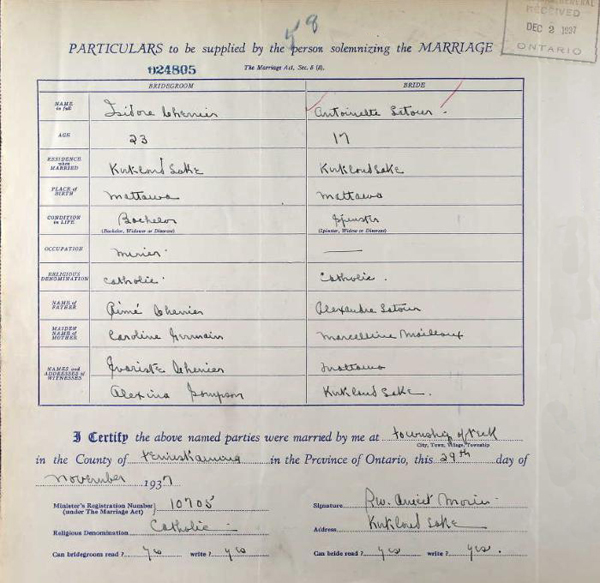 58
GENERAL
RECEIVED
DEC 2 1937
ONTARIO
PARTICULARS to be supplied by the person solemnizing the MARRIAGE
024805
The Marriage Act, Sec. 8 (8).
BRIDEGROOM BRIDE
NAME in full Isidore Cherrier Antoinette Latour
AGE 23 17
RESIDENCE when MARRIED Kirkland Lake Kirkland Lake
PLACE of BIRTH Mattawa Mattawa
CONDITION in LIFE Bachelor Spinster
(Bachelor, Widower or Divorced) (Spinster, Widow or Divorced)
OCCUPATION Miner —
RELIGIOUS DENOMINATION Catholic. Catholic.
NAME of FATHER Aimé Cherrier Alexandre Latour
MAIDEN NAME of MOTHER Caroline Germain Marcelline Mailloux
NAMES and ADDRESSES of WITNESSES Evariste Cherrier Mattawa
Alexina Kirkland Lake.
I Certify the above named parties were married by me at township of Teck
City, Town, Village, Township
in the County of Temiskaming in the Province of Ontario, this 29th day of
November 1937
Minister's Registration Number 10705 Signature Rev. Anicet Morin
(under The Marriage Act)
Religious Denomination Catholic Address Kirkland Lake
Can bridegroom read? yes write? yes Can bride read? yes write? yes.